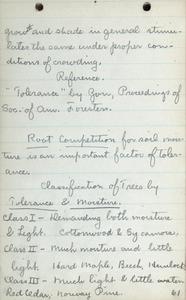 growth and shade in general stimu-
lates the same under proper con-
ditions of crowding.
Reference.
"Tolerance" by Zon, Proceedings of
Soc. of Am. Foresters.
Root Competition for soil mois-
ture is an important factor of toler-
ance.
Classification of Trees by
Tolerance & Moisture.
Class I - Demanding both moisture
& Light. Cottonwood & Sycamore.
Class II - Much moisture and little
light. Hard Maple, Beech, Hemlock
Class III - Much light & little water
Red Cedar, Norway Pine.
61